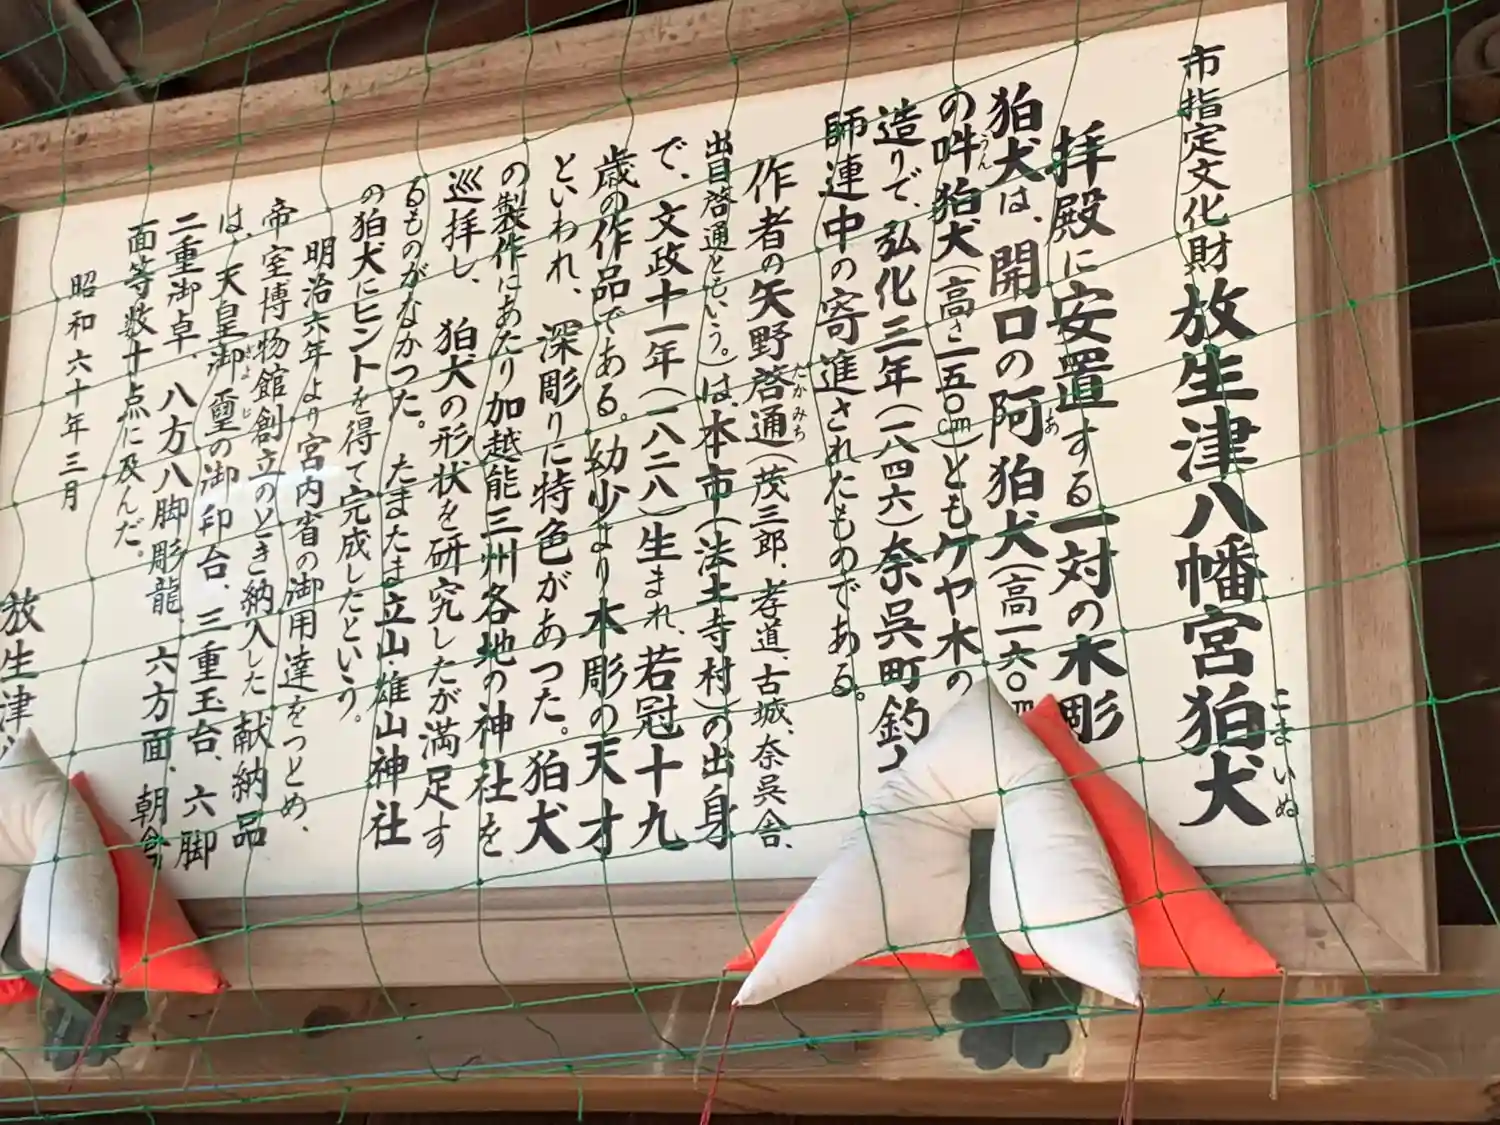 市指定文化財 放生津八幡宮狛犬
こまいぬ
拝殿に安置する一対の木彫
狛犬は、開口の阿狛犬(高一六〇
あ
の吽狛犬(高さ一五〇cm)ともケヤ木の
うん
造りで、弘化三年(一八四六)奈呉町釣
師連中の寄進されたものである。
作者の矢野啓通(茂三郎、孝道、古城、奈呉舎、
たかみち
出目啓通ともいう。)は、本市(法土寺村)の出身
で、文政十一年(一八二八)生まれ、若冠十九
歳の作品である。幼少より木彫の天才
といわれ、深彫りに特色があつた。狛犬
の製作にあたり加越能三州各地の神社を
巡拝し、狛犬の形状を研究したが満足す
るものがなかつた。たまたま立山・雄山神社
の狛犬にヒントを得て完成したという。
明治六年より宮内省の御用達をつとめ、
帝室博物館創立のとき納入した献納品
は、天皇御璽の御印台、三重玉台、六脚
ぎよじ
二重御卓、八方八脚彫龍、六方面、朝倉
面等数十点に及んだ。
昭和六十年三月
放生津